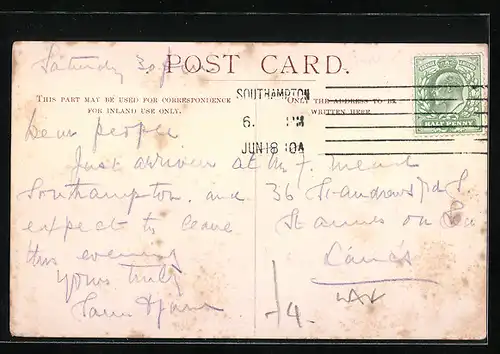 Saturday 3.0 pm
POST CARD.
THIS PART MAY BE USED FOR CORRESPONDENCE
FOR INLAND USE ONLY.
ONLY THE ADDRESS TO BE
WRITTEN HERE
SOUTHAMPTON
6. PM
JUN 18 10A
HALFPENNY
Dear people
Just arrived at
Southampton and
expect to leave
this evening
Yours truly
Mr F.
36 St Andrews Rd S.
St annes on Sea
Lancs